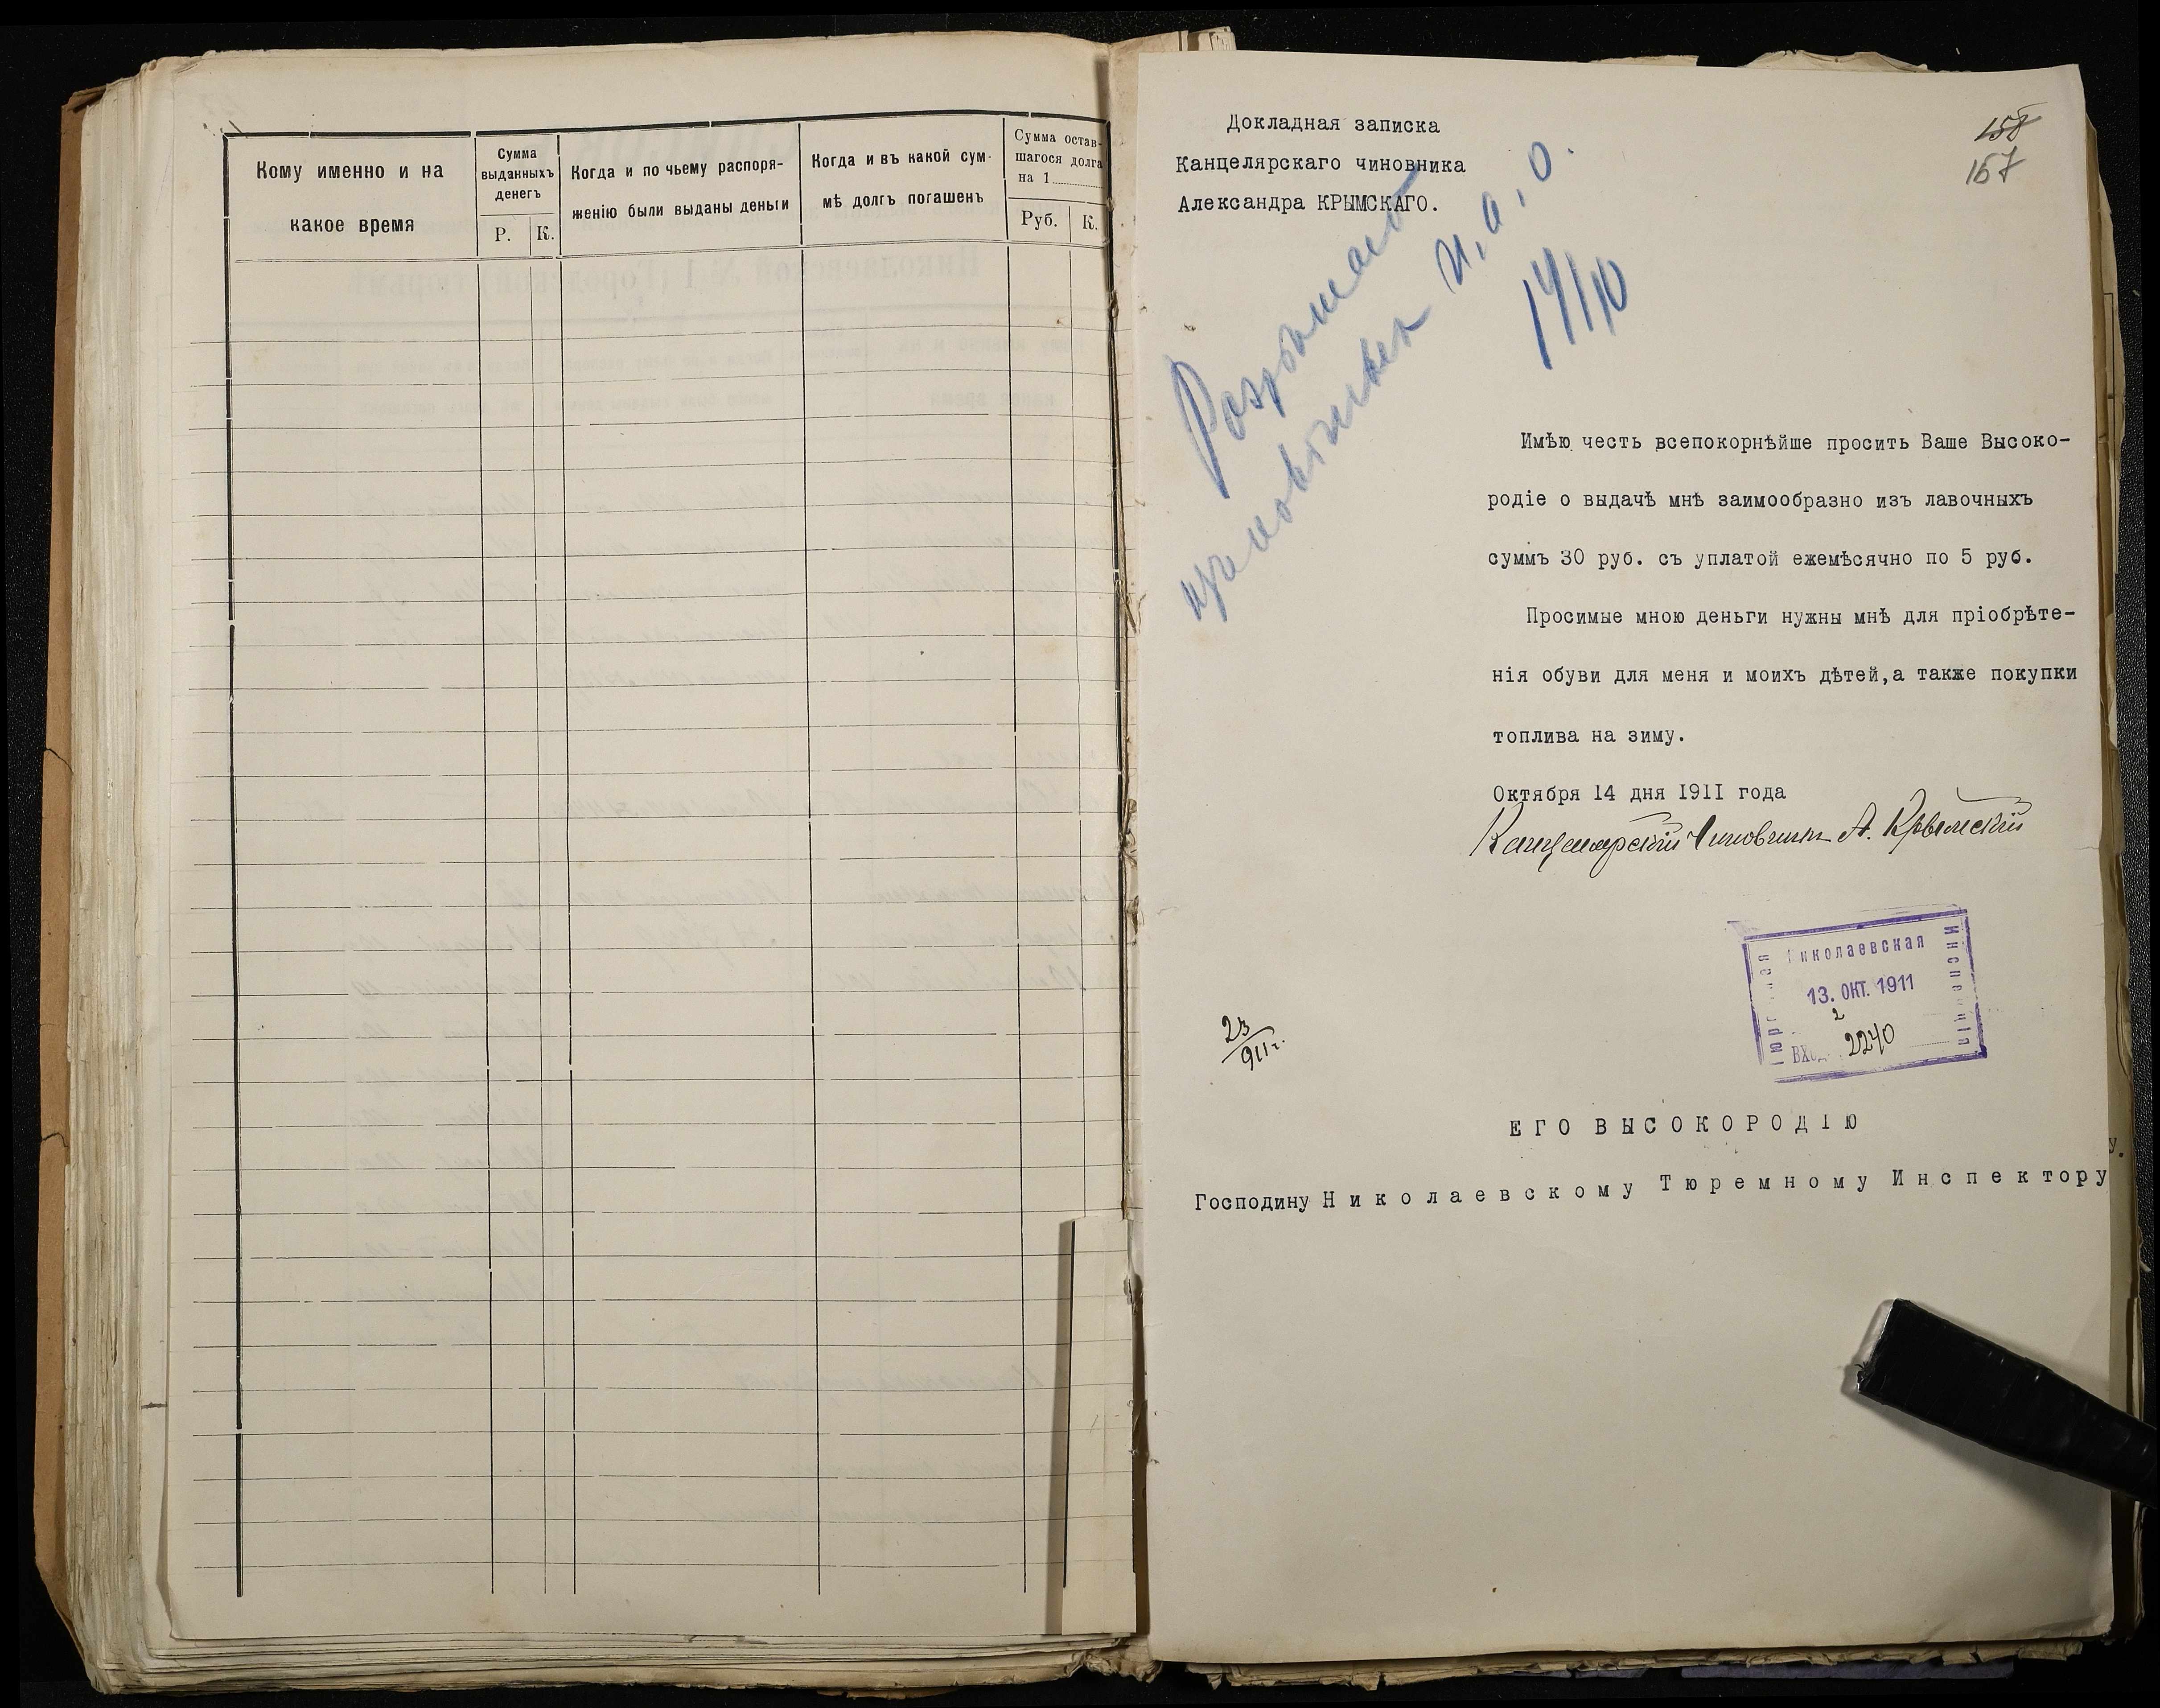 Кому именно и на
какое время
Сумма
выданныхъ
денегъ
Р.
К.
Когда и по чьему распоря-
женію были выданы деньги
Когда и въ какой сум-
мѣ долгъ погашенъ
Сумма остав-
шагося долга
на 1
Руб.
К.
158
157
Докладная записка
Канцелярскаго чиновника
Александра КРЫМСКАГО.
14/10
Имѣю честь всепокорнѣйше просить Ваше Высоко-
родіе о выдачѣ мнѣ заимообразно изъ лавочныхъ
суммъ 30 руб. съ уплатой ежемѣсячно по 5 руб.
Просимые мною деньги нужны мнѣ для пріобрѣте-
нія обуви для меня и моихъ дѣтей, а также покупки
топлива на зиму.
Октября 14 дня 1911 года
Канцелярскій Чиновникъ А. Крымскій
Николаевская
Тюремная
Инспекція
13. ОКТ. 1911
ВХОД. 2240
23/911 г.
ЕГО ВЫСОКОРОДІЮ
Господину Николаевскому Тюремному Инспектору